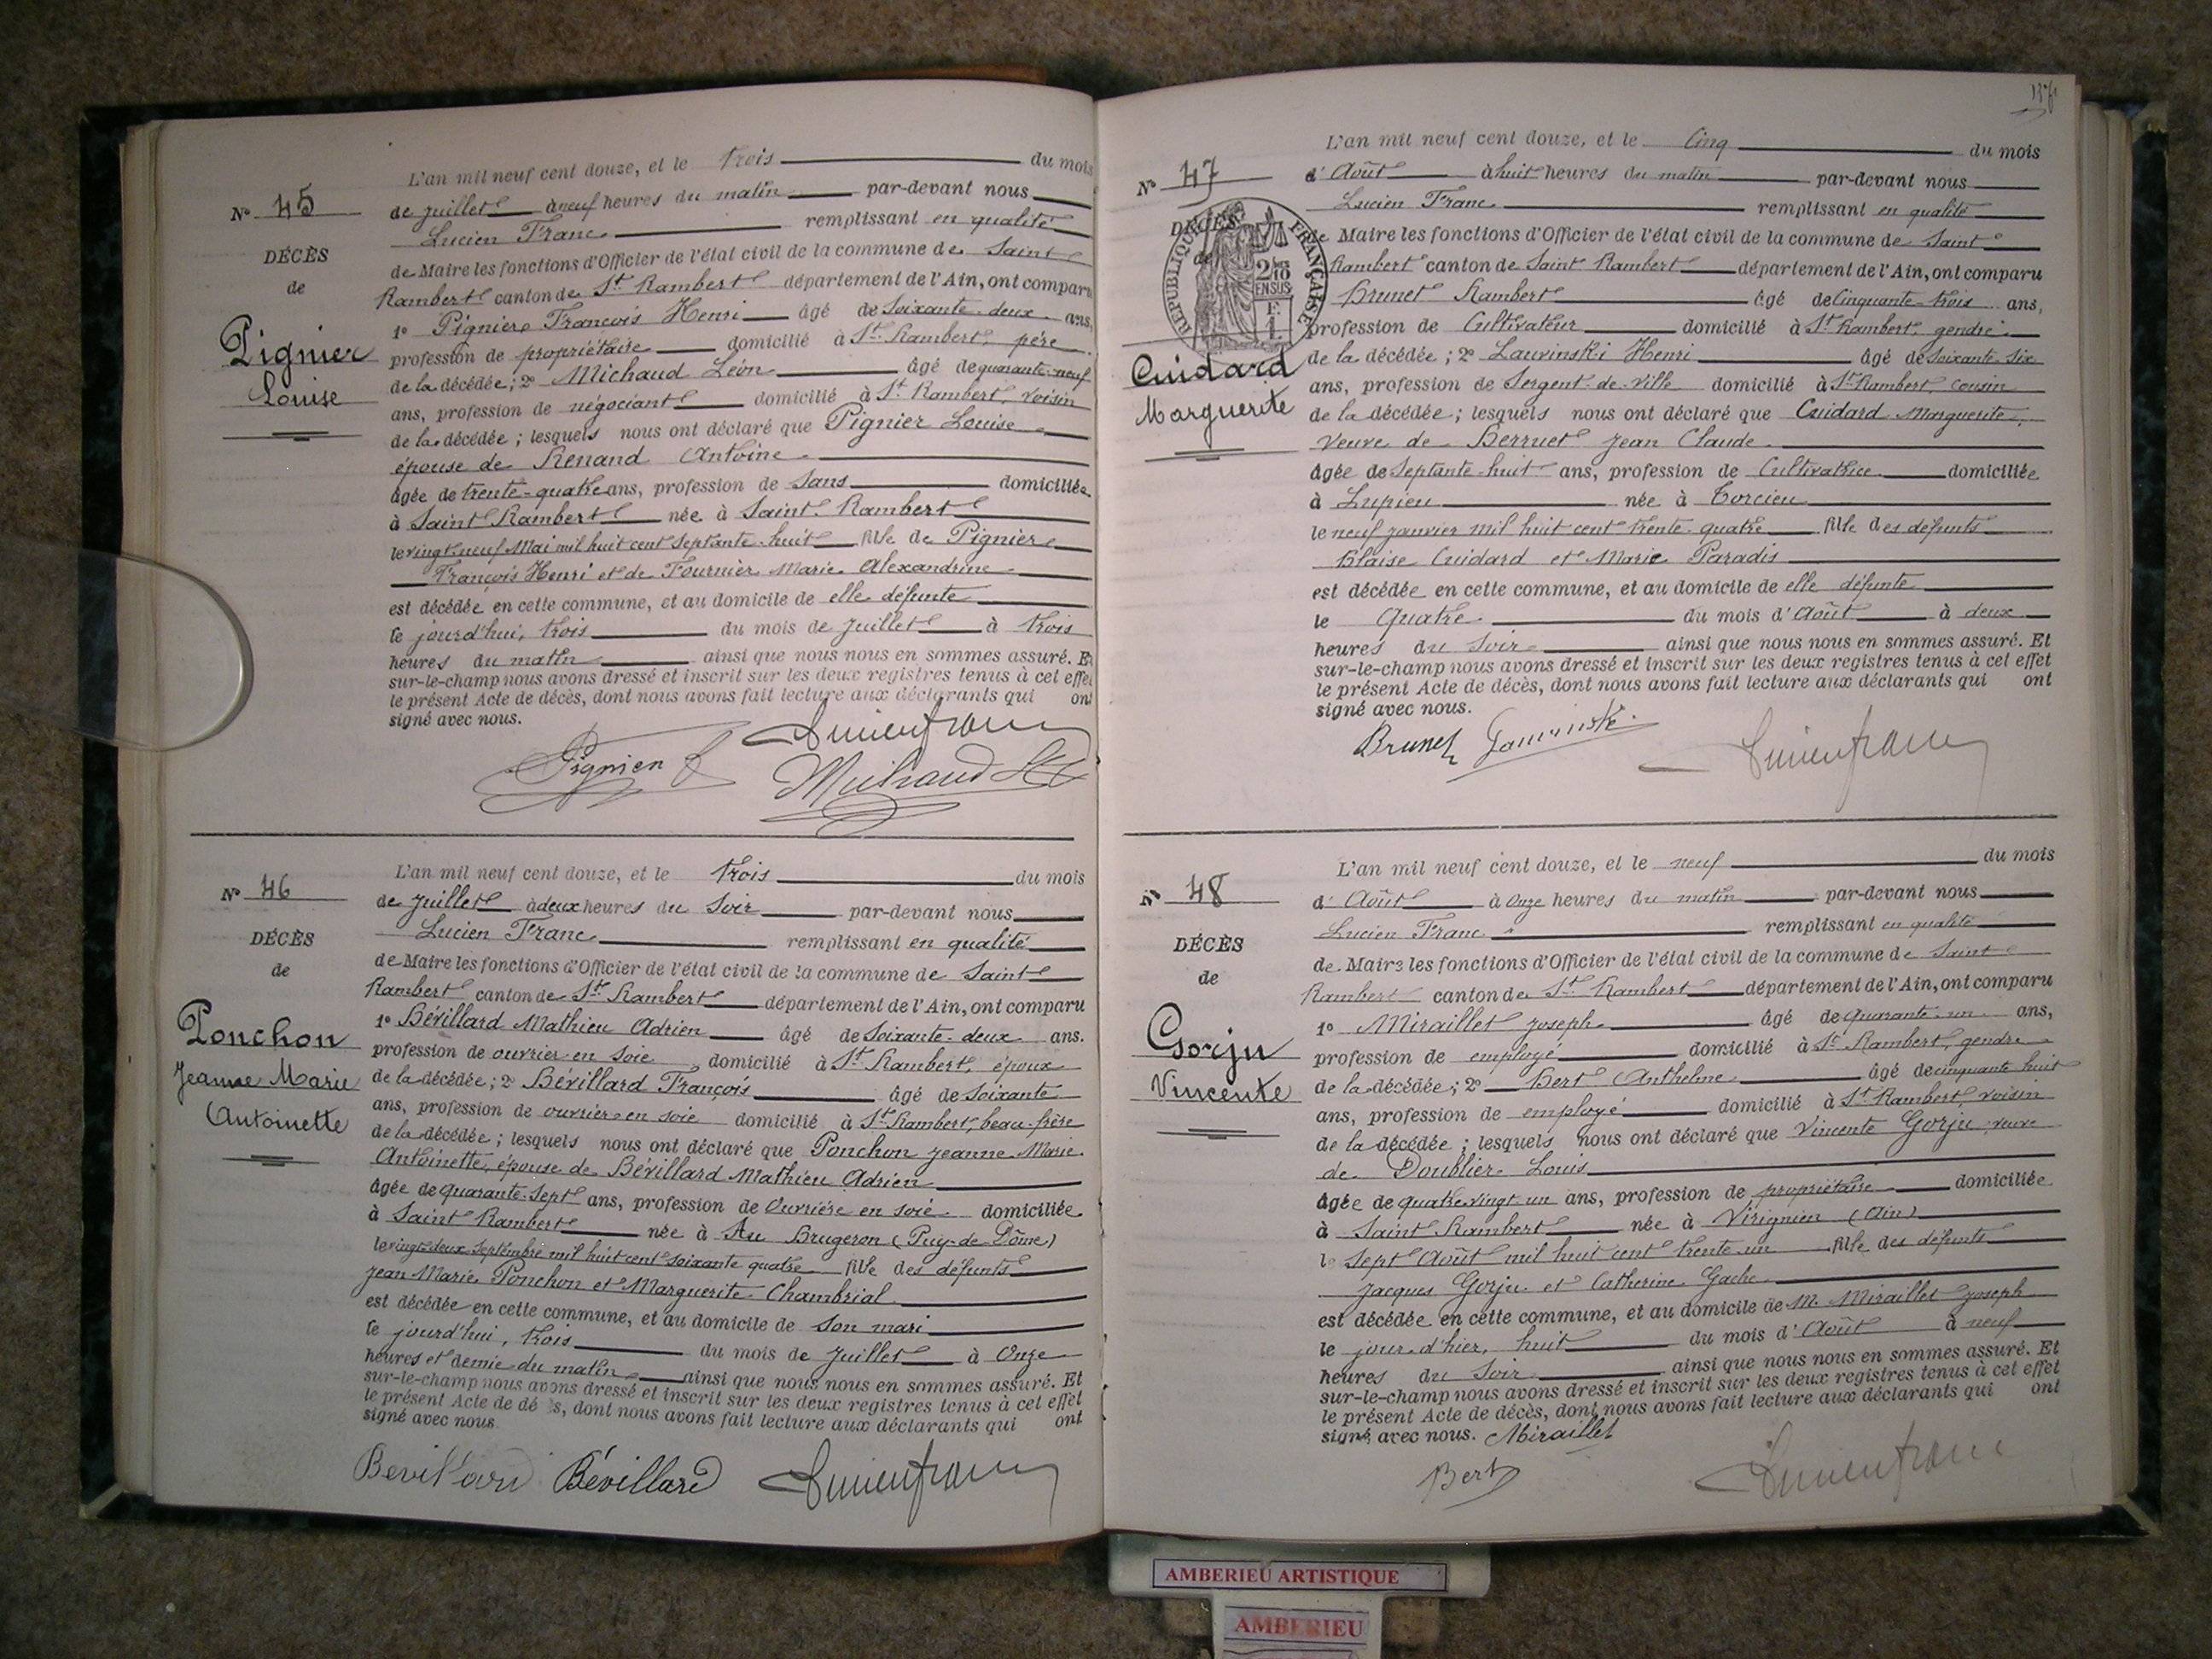 L'an mil neuf cent douze, et le trois du mois
N° 45
de Juillet à neuf heures du matin par-devant nous
Lucien Franc remplissant en qualité
DÉCÈS
de Maire les fonctions d'Officier de l'état civil de la commune de Saint
de
Rambert canton de St. Rambert département de l'Ain, ont comparu
1° Pignier François Henri âgé de soixante-deux ans,
Pignier
profession de propriétaire domicilié à St. Rambert, père
Louise
de la décédée; 2° Michaud Léon âgé de quarante-neuf
ans, profession de négociant domicilié à St. Rambert, voisin
de la décédée; lesquels nous ont déclaré que Pignier Louise
épouse de Renand Antoine
âgée de trente-quatre ans, profession de sans domiciliée
à Saint Rambert née à Saint-Rambert
le vingt-neuf Mai mil huit cent septante-huit fille de Pignier
François Henri et de Fournier Marie Alexandrine
est décédée en cette commune, et au domicile de elle défunte
le jourd'hui, trois du mois de Juillet à trois
heures du matin ainsi que nous nous en sommes assuré. Et
sur-le-champ nous avons dressé et inscrit sur les deux registres tenus à cet effet
le présent Acte de décès, dont nous avons fait lecture aux déclarants qui ont
signé avec nous.
Lucien franc
Pignier
Michaud
L'an mil neuf cent douze, et le trois du mois
N° 46
de Juillet à deux heures du soir par-devant nous
Lucien Franc remplissant en qualité
DÉCÈS
de Maire les fonctions d'Officier de l'état civil de la commune de Saint
de
Rambert canton de St. Rambert département de l'Ain, ont comparu
1° Bévillard Mathieu Adrien âgé de soixante-deux ans.
Ponchon
profession de ouvrier en soie domicilié à St. Rambert, époux
Jeanne Marie
de la décédée; 2° Bévillard François âgé de soixante
Antoinette
ans, profession de ouvrier en soie domicilié à St. Rambert, beau-frère
de la décédée; lesquels nous ont déclaré que Ponchon Jeanne Marie
Antoinette, épouse de Bévillard Mathieu Adrien
âgée de quarante-sept ans, profession de Ouvrière en soie domiciliée
à Saint Rambert née à Au Brugeron (Puy-de Dôme)
le vingt-deux septembre mil huit cent soixante quatre fille des défunts
Jean Marie Ponchon et Marguerite Chambrial
est décédée en cette commune, et au domicile de son mari
le jourd'hui, trois du mois de Juillet à Onze
heures et demie du matin ainsi que nous nous en sommes assuré. Et
sur-le-champ nous avons dressé et inscrit sur les deux registres tenus à cet effet
le présent Acte de décès, dont nous avons fait lecture aux déclarants qui ont
signé avec nous.
Bevillard Bévillard Lucien franc
L'an mil neuf cent douze, et le Cinq du mois
N° 47
d'Août à huit heures du matin par-devant nous
Lucien Franc remplissant en qualité
DÉCÈS
de
RÉPUBLIQUE FRANÇAISE
2/10 EN SUS
F. 1.
de Maire les fonctions d'Officier de l'état civil de la commune de Saint
Rambert canton de Saint Rambert département de l'Ain, ont comparu
Brunet Rambert âgé de Cinquante-trois ans,
profession de Cultivateur domicilié à St. Rambert gendre
Cuidard
de la décédée; 2° Laurinski Henri âgé de soixante six
Marguerite
ans, profession de Sergent-de-Ville domicilié à St. Rambert, cousin
de la décédée; lesquels nous ont déclaré que Cuidard Marguerite,
veuve de Berruet Jean Claude
âgée de septante-huit ans, profession de Cultivatrice domiciliée
à Lupieu née à Torcieu
le neuf janvier mil huit cent trente-quatre fille des défunts
Blaise Cuidard et Marie Paradis
est décédée en cette commune, et au domicile de elle défunte
le Quatre du mois d'Août à deux
heures du soir ainsi que nous nous en sommes assuré. Et
sur-le-champ nous avons dressé et inscrit sur les deux registres tenus à cet effet
le présent Acte de décès, dont nous avons fait lecture aux déclarants qui ont
signé avec nous.
Brunet Lucien franc
L'an mil neuf cent douze, et le neuf du mois
N° 48
d'Août à Onze heures du matin par-devant nous
Lucien Franc remplissant en qualité
DÉCÈS
de Maire les fonctions d'Officier de l'état civil de la commune de Saint
de
Rambert canton de St. Rambert département de l'Ain, ont comparu
1° Miraillet Joseph âgé de quarante-un ans,
Gorju
profession de employé domicilié à St. Rambert, gendre
Vincente
de la décédée; 2° Bert Anthelme âgé de cinquante huit
ans, profession de employé domicilié à St. Rambert, voisin
de la décédée; lesquels nous ont déclaré que Vincente Gorju, veuve
de Doublier Louis
âgée de quatre-vingt-un ans, profession de propriétaire domiciliée
à Saint Rambert née à Virignien (Ain)
le sept Août mil huit cent trente-un fille des défunts
Jacques Gorju et Catherine Gache
est décédée en cette commune, et au domicile de M. Miraillet Joseph
le jour d'hier, huit du mois d'Août à neuf
heures du soir ainsi que nous nous en sommes assuré. Et
sur-le-champ nous avons dressé et inscrit sur les deux registres tenus à cet effet
le présent Acte de décès, dont nous avons fait lecture aux déclarants qui ont
signé avec nous. Miraillet
Bert Lucien franc
AMBERIEU ARTISTIQUE
AMBERIEU